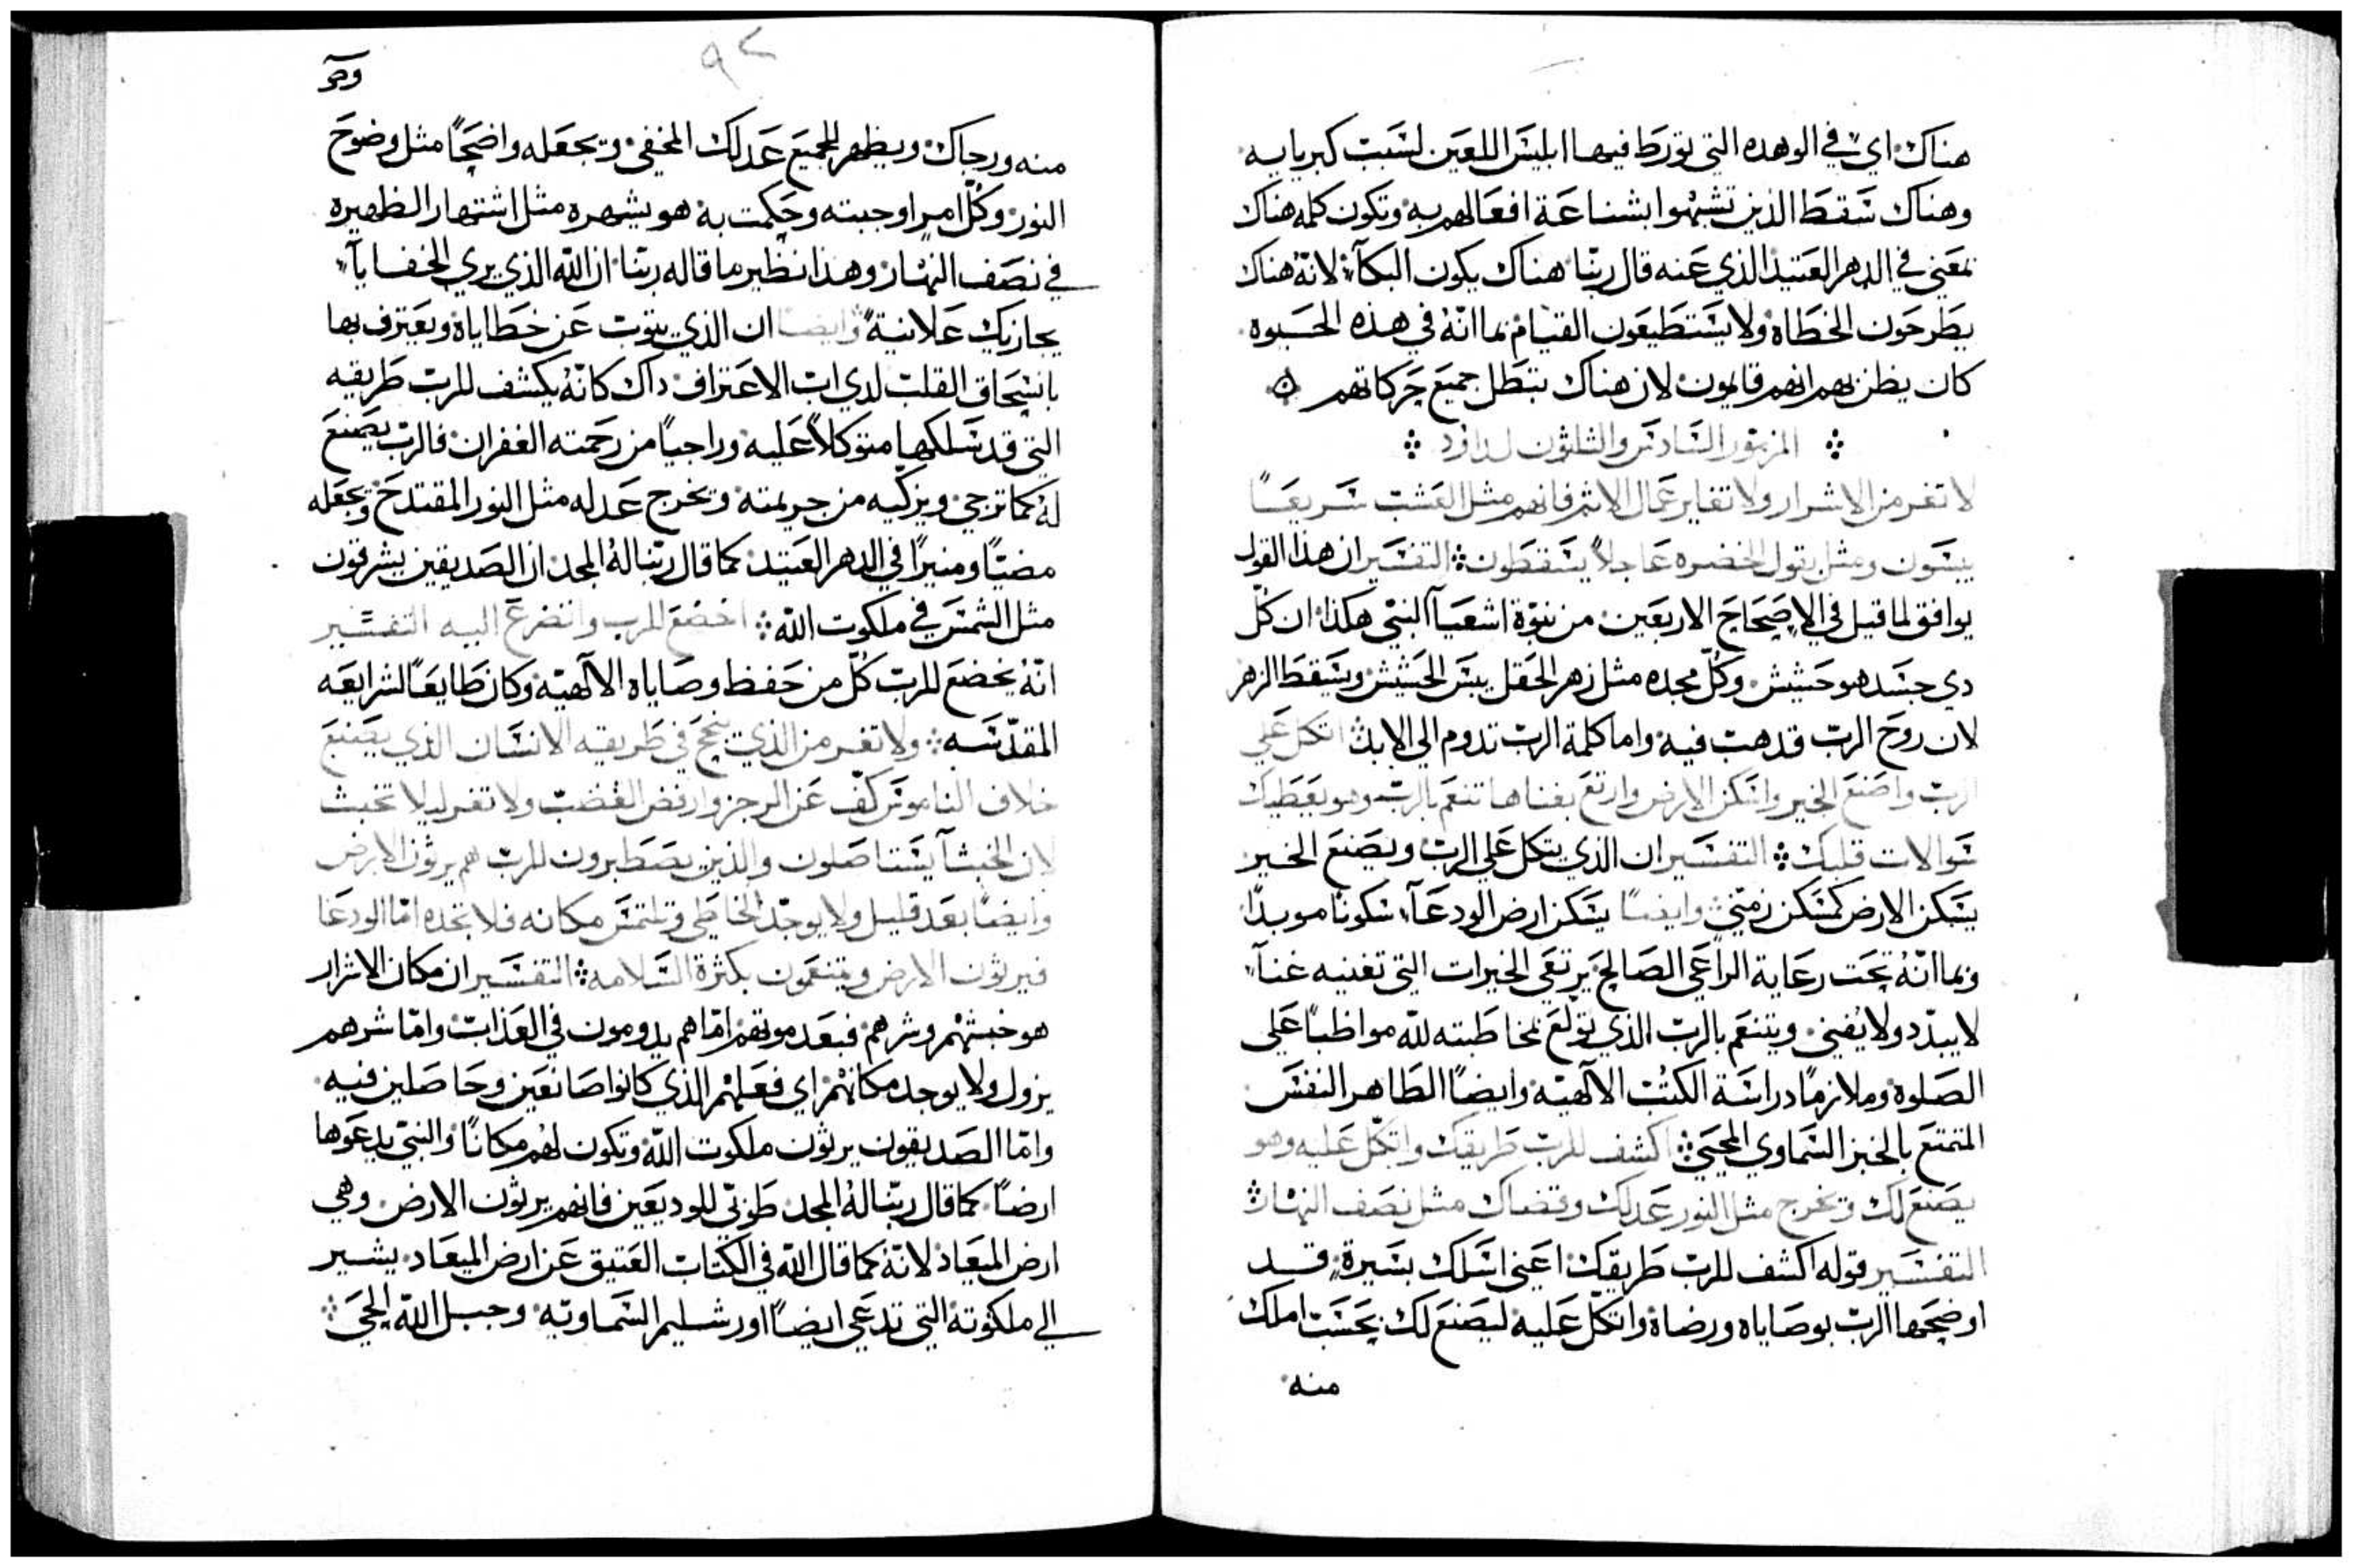 هناك اي في الوهده التي تورط فيها ابليس اللعين لسبب كبريايه
وهناك سقط الذين تشبهوا بشناعة افعالهم به وتكون كلمه هناك
بمعني في الدهر العتيد الذي عنه قال ربنا هناك يكون البكآء لانه هناك
يطرحون الخطاه ولا يستطيعون القيام بما انه في هذه الحيوه
كان يظن بهم انهم قايمون لان هناك تبطل جميع حركاتهم
المزمور السادس والثلثون لداود
لا تغر من الاشرار ولا تغاير عمال الاثم فانهم مثل العشب سريعًا
ييبسون ومثل بقول الخضره عاجلاً يسقطون التفسير ان هذا القول
يوافق لما قيل في الاصحاح الاربعين من نبوة اشعيآ النبي هكذا ان كل
دي جسد هو حشيش وكل مجده مثل زهر الحقل يبس الحشيش وسقط الزهر
لان روح الرب قد هبت فيه واما كلمة الرب تدوم الي الابد اتكل علي
الرب واصنع الخير واسكن الارض وارتع بغناها تنعم بالرب وهو يعطيك
سوالات قلبك التفسير ان الذي يتكل علي الرب ويصنع الخير
يسكن الارض كمسكن زمني وايضًا يسكن ارض الودعآء سكونًا موبدًا
وبما انه تحت رعاية الراعي الصالح يرتعي الخيرات التي تغنيه غنآء
لا يبدد ولا يفني ويتنعم بالرب الذي تولع بمخاطبته لله مواظبًا علي
الصلوة وملازمًا دراسة الكتب الالهيه وايضًا الطاهر النفس
المتمتع بالخبز السماوي المحيي اكشف للرب طريقك واتكل عليه وهو
يصنع لك ويخرج مثل النور عدلك وقضاك مثل نصف النهار
التفسير قوله اكشف للرب طريقك اعني اسلك بسيرة قد
اوضحها الرب بوصاياه ورضاه واتكل عليه ليصنع لك بحسب املك
منه
٩٢
منه ورجاك ويظهر للجميع عدلك المخفي ويجعله واضحًا مثل وضوح
النور وكل امر اوجبته وحكمت به هو يشهره مثل اشتهار الظهيره
في نصف النهار وهذا نظير ما قاله ربنا ان الله الذي يري الخفايآء
يجازيك علانية وايضًا ان الذي يتوب عن خطاياه ويعترف بها
بانسحاق القلب لدي اب الاعتراف داك كانه يكشف للرب طريقه
التي قد سلكها متوكلاً عليه وراجيًا من رحمته الغفران فالرب يصنع
له كما ترجي ويزكيه من جريمته ويخرج عدله مثل النور المقتدح ويجعله
مضيًا ومنيرًا في الدهر العتيد كما قال ربنا له المجد ان الصديقين يشرقون
مثل الشمس في ملكوت الله اخضع للرب واتضرع اليه التفسير
انه يخضع للرب كل من حفظ وصاياه الالهيه وكان طايعًا لشرايعه
المقدسه ولا تغر من الذي ينجح في طريقه الانسان الذي يصنع
خلاف الناموس كف عن الرجز وارفض الغضب ولا تغر ليلا تخبث
لان الخبثآ يستاصلون والذين يصطبرون للرب هم يرثون الارض
وايضًا بعد قليل ولا يوجد الخاطي وتلتمس مكانه فلا تجده اما الودعا
فيرثون الارض ويتنعمون بكثرة السلامه التفسير ان مكان الاشرار
هو خبثهم وشرهم فبعد موتهم اما هم يدومون في العذاب واما شرهم
يزول ولا يوجد مكانهم اي فعلهم الذي كانوا صانعين وحاصلين فيه
واما الصديقون يرثون ملكوت الله وتكون لهم مكانًا والنبي يدعوها
ارضًا كما قال ربنا له المجد طوبي للوديعين فانهم يرثون الارض وهي
ارض الميعاد لانه كما قال الله في الكتاب العتيق عن ارض الميعاد يشير
الي ملكوته التي تدعي ايضًا اورشليم السماويه وجبل الله الحي